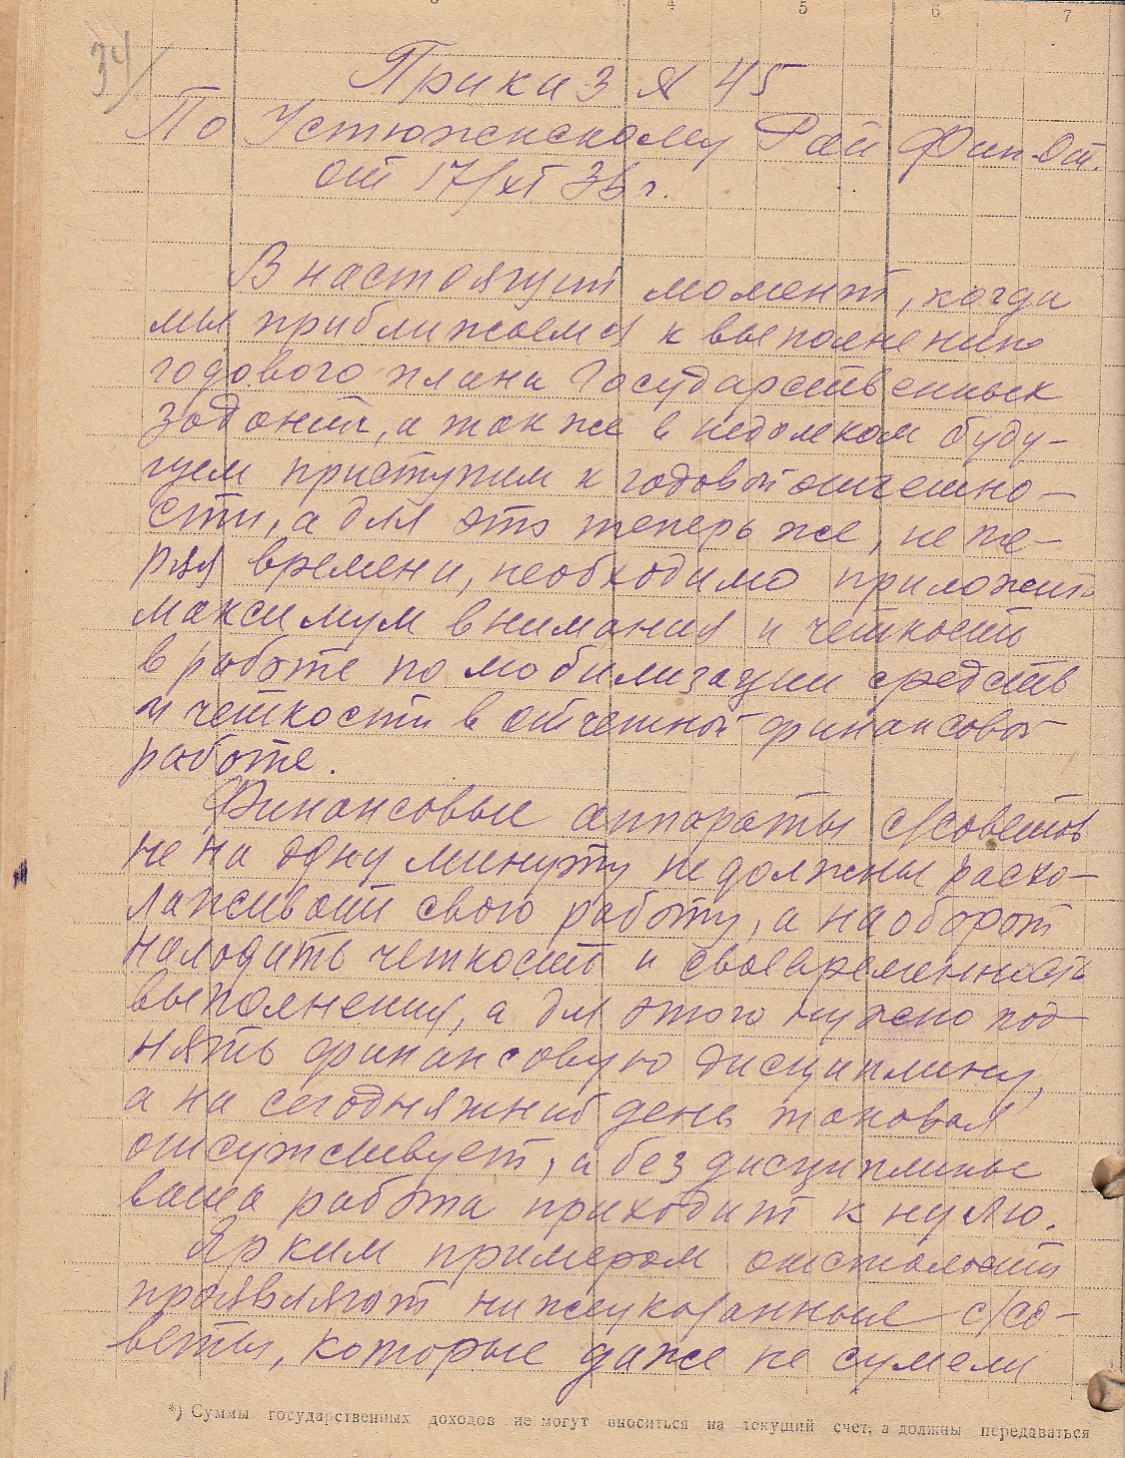 4 5 6 7
34/
Приказ № 45
По Устюженскому Рай Фин. От.
от 17/XI 36 г.
В настоящий момент, когда
мы приближаемся к выполнению
годового плана Государственных
заданий, а так же в недалеком буду-
щем приступим к годовой отчетно-
сти, а для это теперь же, не те-
ряя времени, необходимо приложить
максимум внимания и четкость
в работе по мобилизации средств
и четкости в отчетной финансовой
работе.
Финансовые аппараты с/советов
не на одну минуту не должны расхо-
лаживать свою работу, а наоборот
наладить четкость и своевременность
выполнения, а для этого нужно под-
нять финансовую дисциплину,
а на сегодняжний день таковая
отсужствует, а без дисциплины
ваша работа приходит к нулю.
Ярким примером отсталости
проявляют нижеуказанные с/со-
веты, которые даже не сумели
*) Суммы государственных доходов не могут вноситься на текущий счет, а должны передаваться